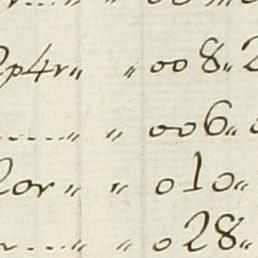 2p4r„ „ 008„2
....„ „ 006„
2or„ „ 010„
r...„ „ 028„